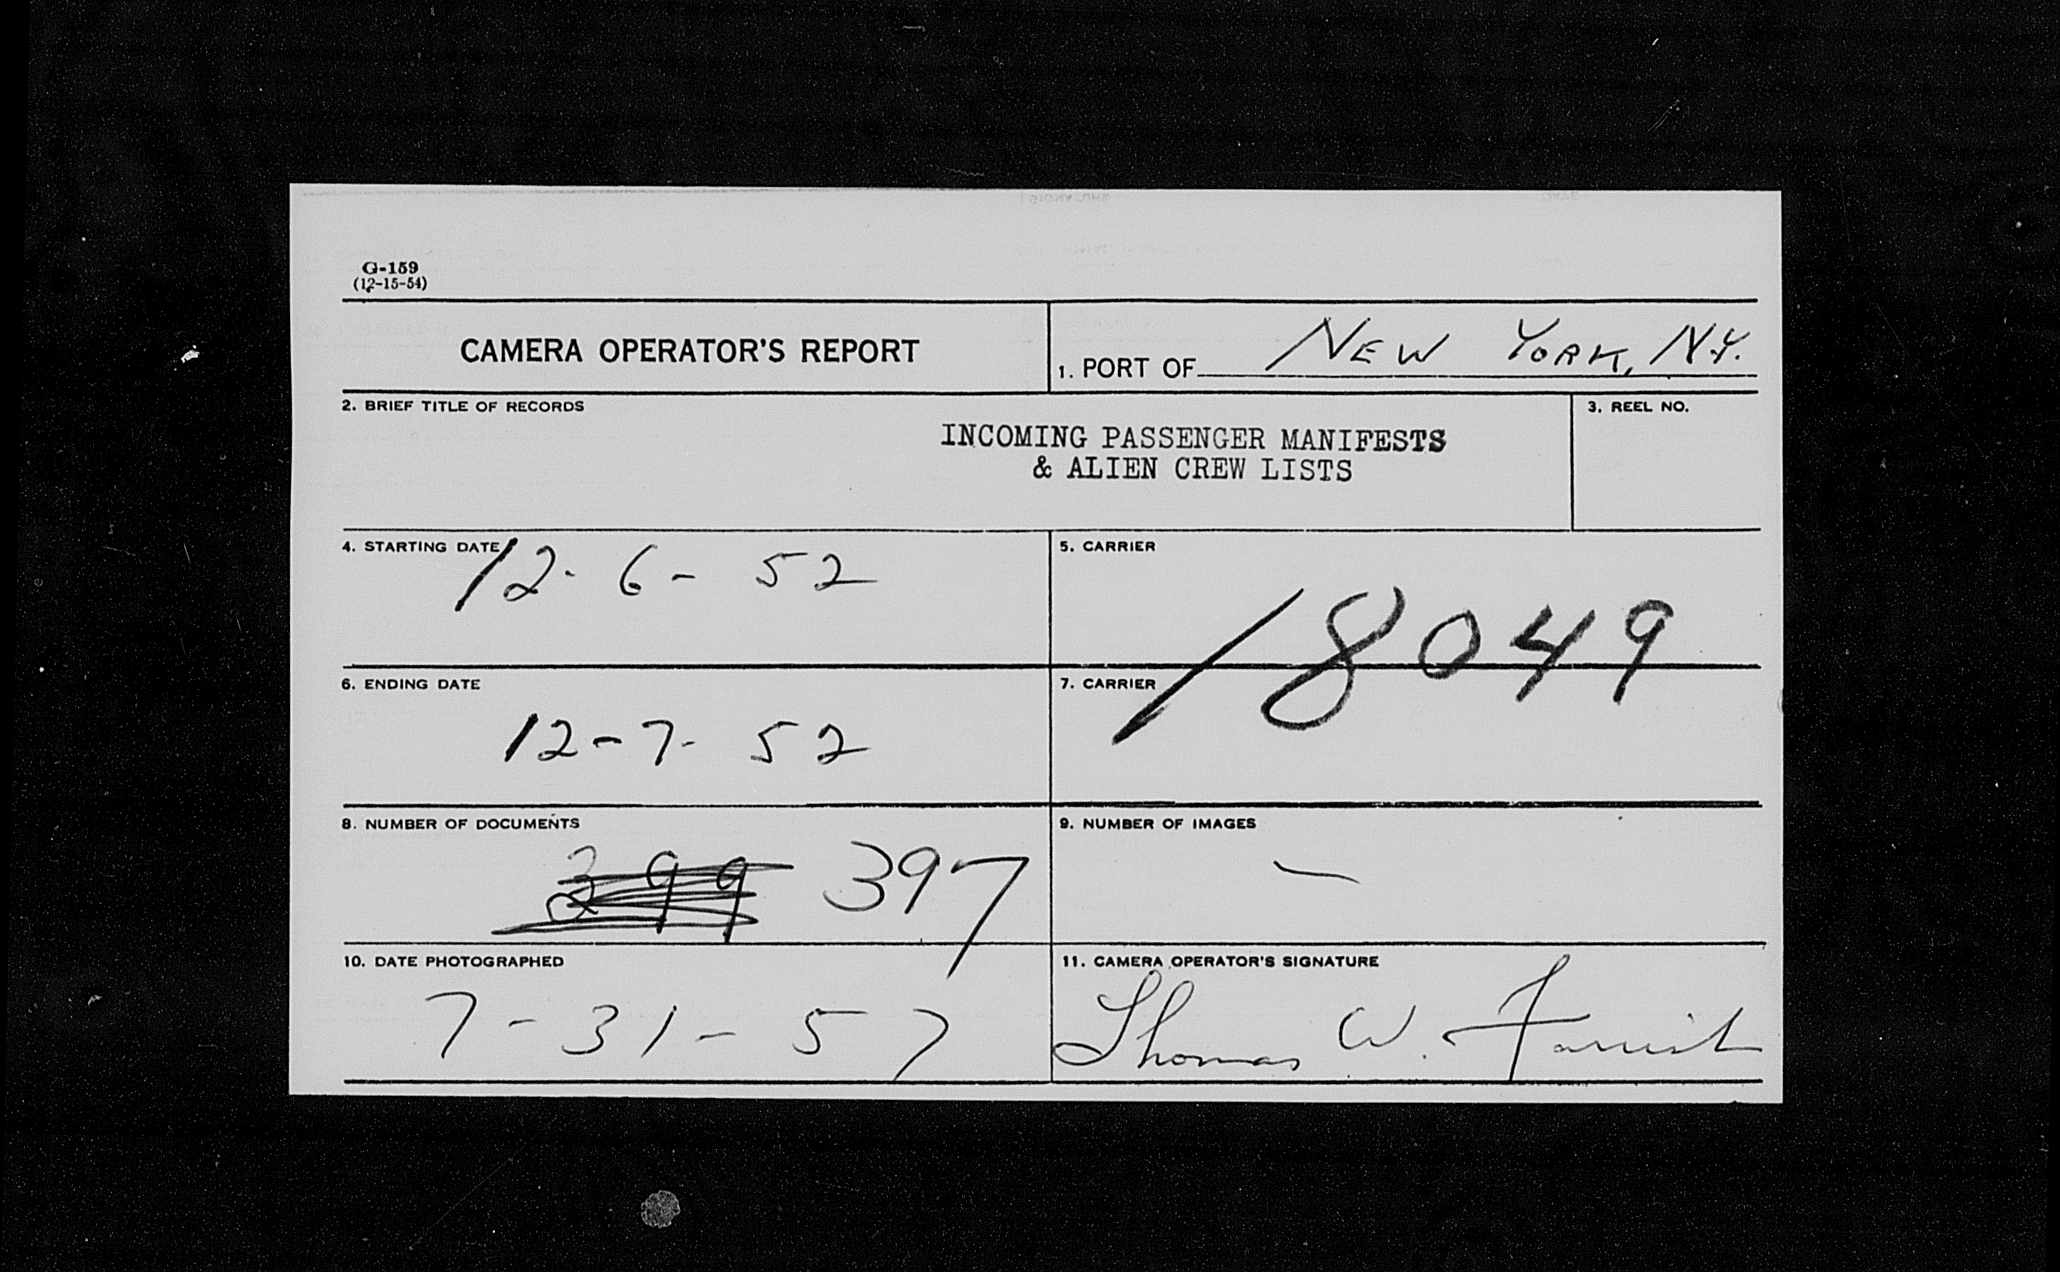 G-159
(12-15-54)
CAMERA OPERATOR'S REPORT
1. PORT OF NEW YORK, N.Y.
2. BRIEF TITLE OF RECORDS
INCOMING PASSENGER MANIFESTS
& ALIEN CREW LISTS
3. REEL NO.
4. STARTING DATE
12-6-52
5. CARRIER
18049
6. ENDING DATE
12-7-52
7. CARRIER
8. NUMBER OF DOCUMENTS
399 397
9. NUMBER OF IMAGES
—
10. DATE PHOTOGRAPHED
7-31-57
11. CAMERA OPERATOR'S SIGNATURE
Thomas W.